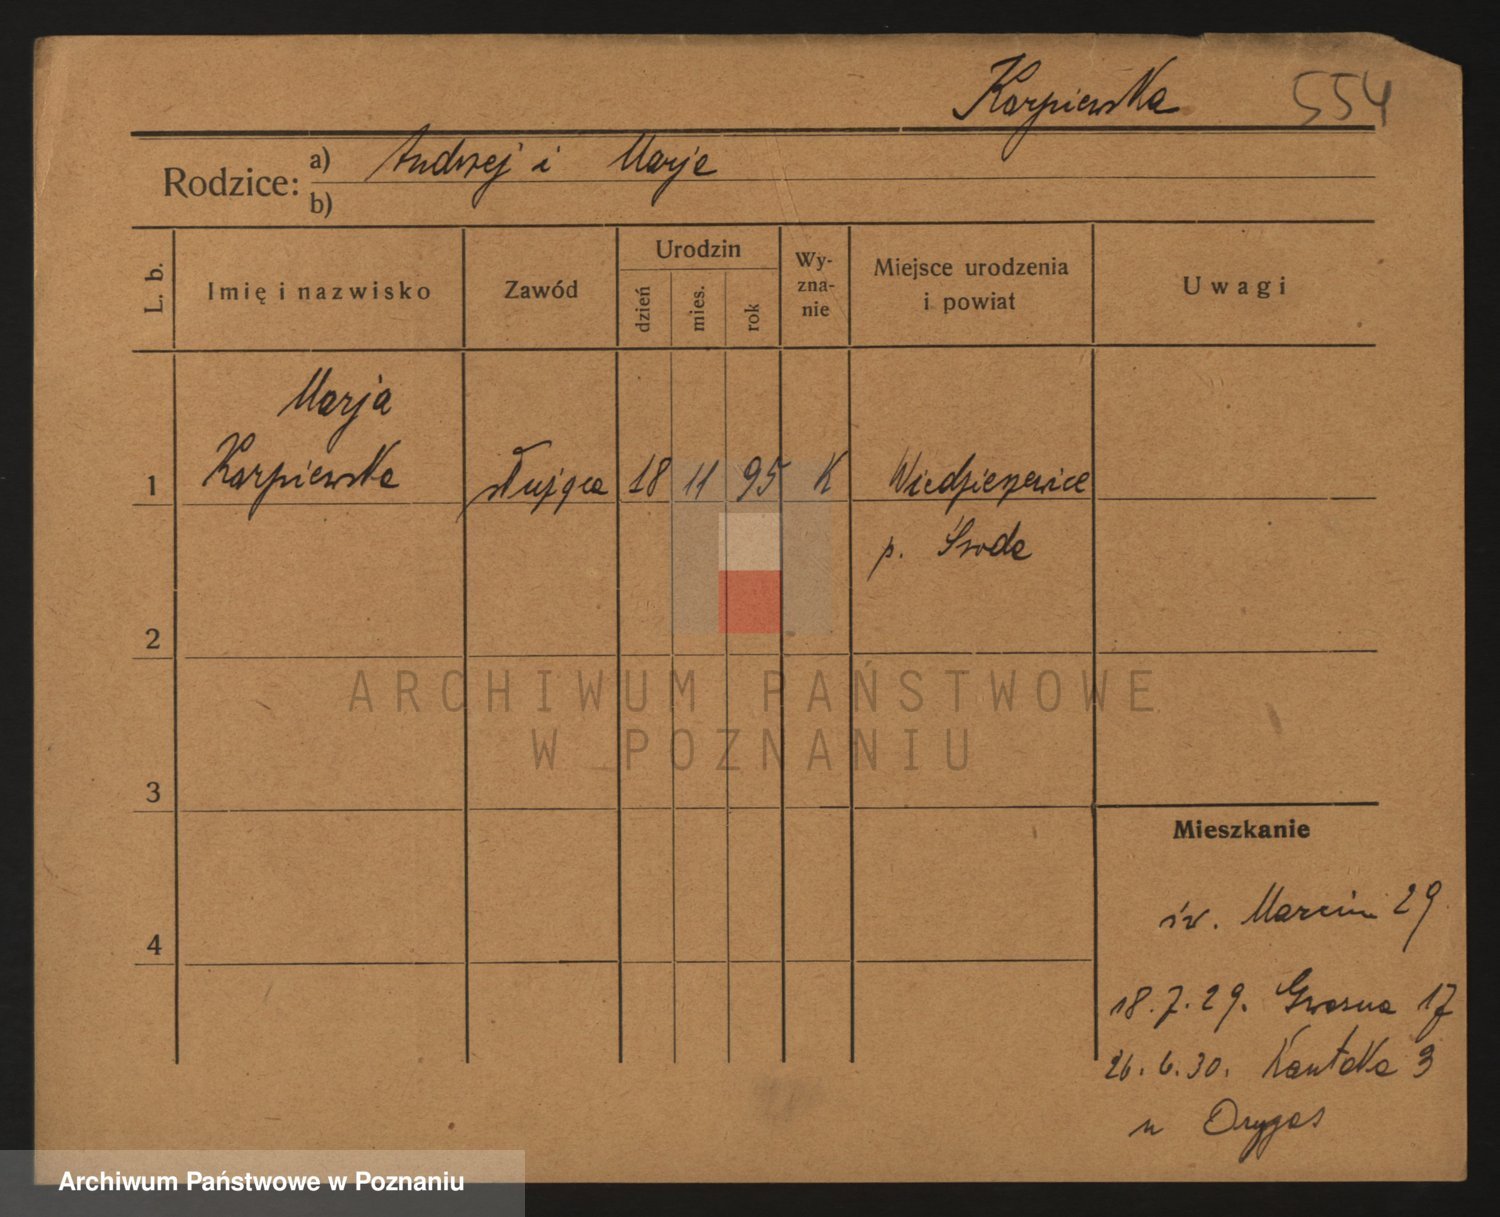 Karpiewska 554
Rodzice: a) Andrzej i Marje
b)
L. b. Imię i nazwisko Zawód Urodzin dzień mies. rok Wy-zna-nie Miejsce urodzenia i powiat Uwagi
Marja
1 Karpiewska służąca 18 11 95 K
p. Środa
2
ARCHIWUM PAŃSTWOWE
W POZNANIU
3
Mieszkanie
św. Marcin 29
4
18.7.29. Kwaśna 17
26.6.30. Kantaka 3
u Drygas
Archiwum Państwowe w Poznaniu